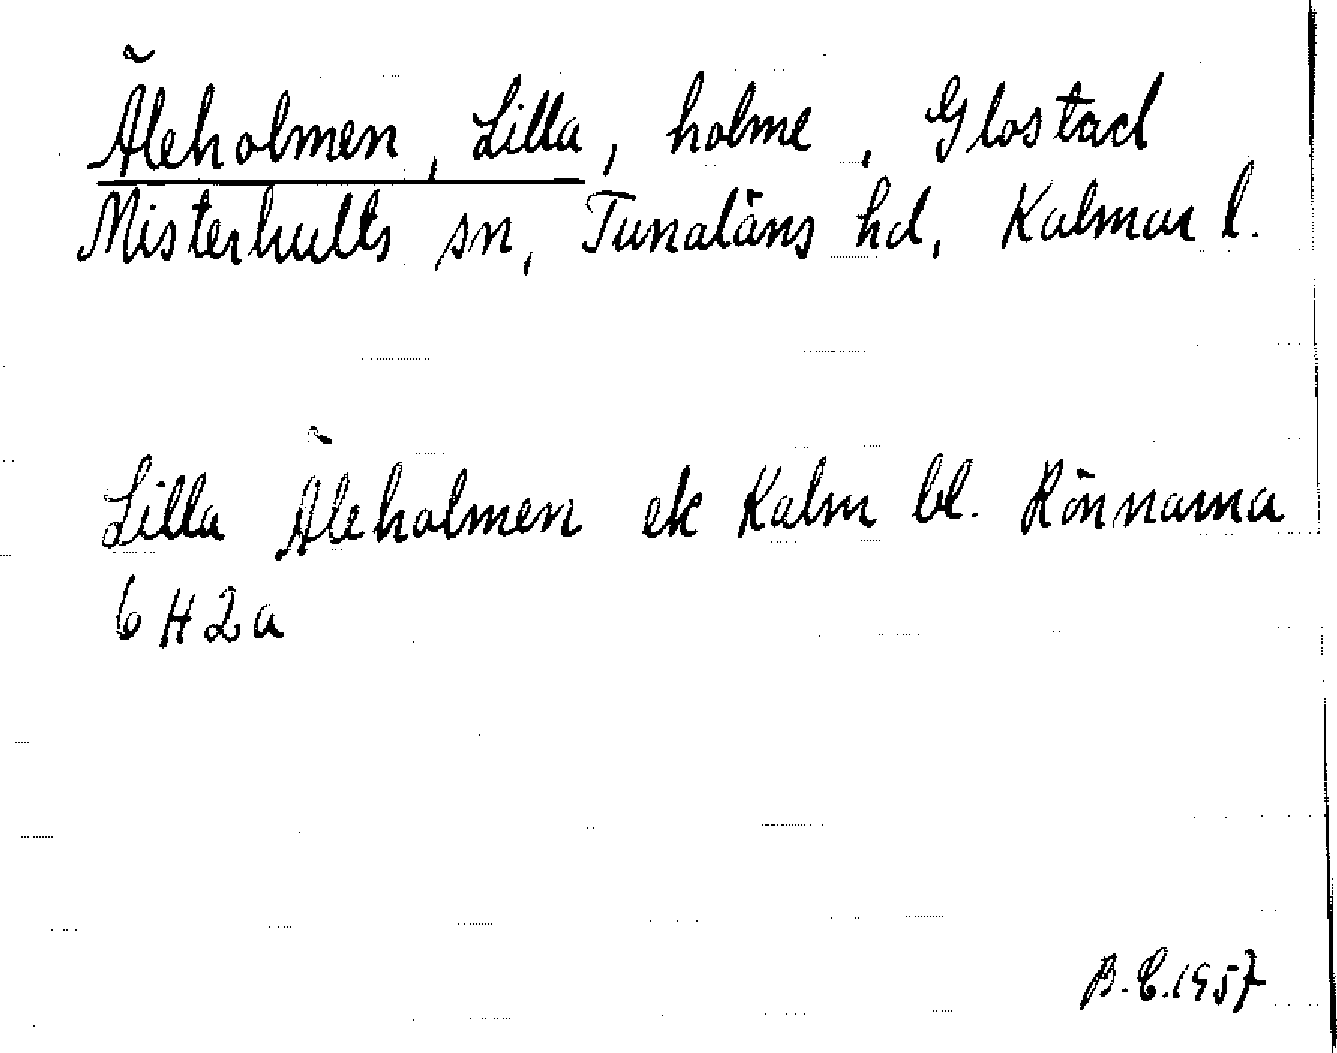 Äleholmen, Lilla, holme, Glostad
Misterhults sn, Tunaläns hd, Kalmar l.
Lilla Äleholmen ek Kalm bl. Rönnarna
6 H 2 a
B.E. 1957